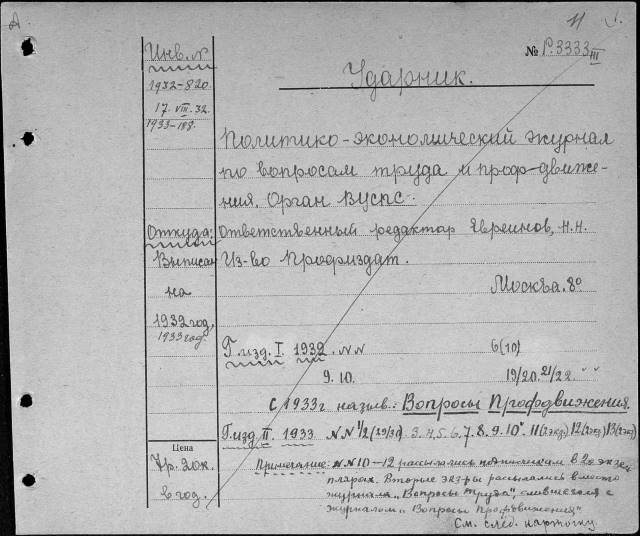 11
№ Р.3333 III
Ударник.
Инв. №
1932-820
17. VIII. 32.
1933-188.
Политико-экономический журнал
по вопросам труда и проф-движе-
ния. Орган ВУСПС.
Откуда: Ответственный редактор Явреинов, Н.Н.
Выписан Из-во Профиздат.
на Москва. 8º
1932 год,
1933 год.
Г. изд. I. 1932. №№ 6(10)
9. 10. 19/20. 21/22. " "
с 1933 г назыв.: Вопросы Профдвижения.
Г. изд. II. 1933 №№ 1/2 3. 4. 5. 6. 7. 8. 9. 10. 11(2экз) 12(2экз) 13(2экз)
Цена
12 док.
в год.
Примечание: №№ 10-12 рассылались подписчикам в 2х экзем
плярах. Вторые экз-ры рассылались вместо
журнала "Вопросы труда", слившегося с
журналом "Вопросы Профдвижения"
См. след. карточку